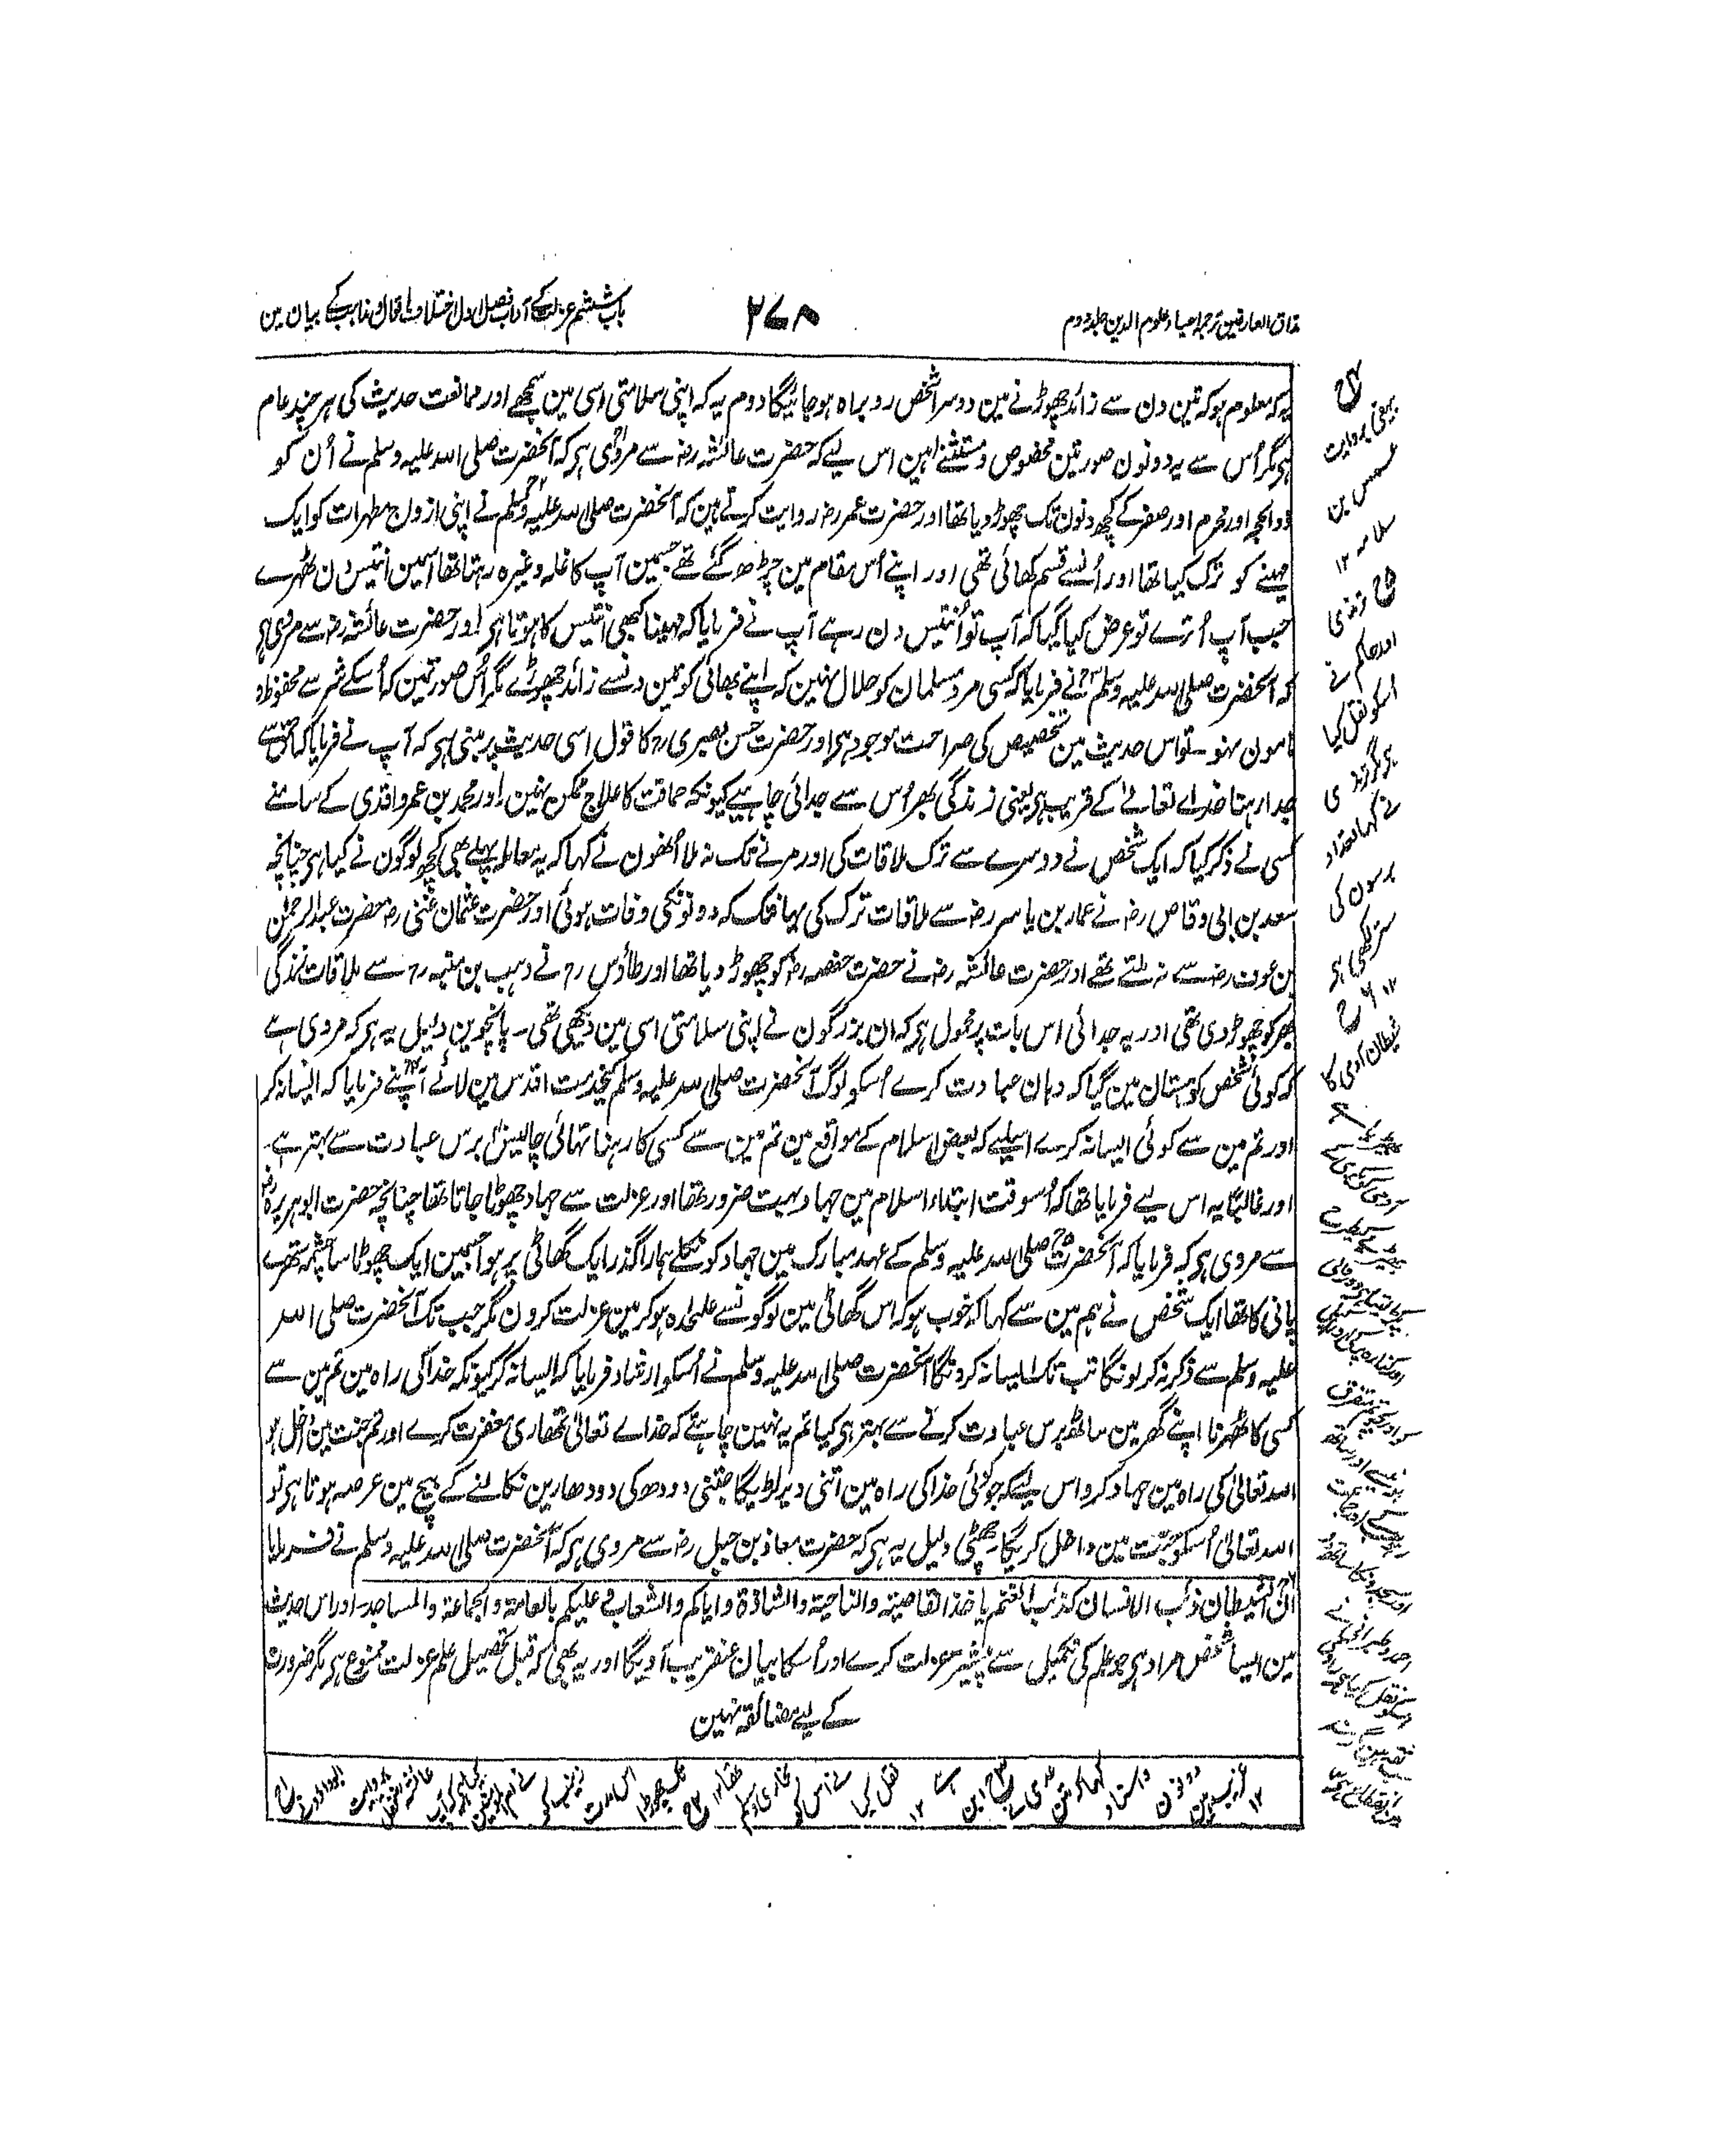 مذاق العارفین ترجمہ احیاء علوم الدین جلد دوم
۲۷۸
باب ششم عزلت کے آداب فصل اول اختلاف اقوال و مذاہب کے بیان مین
یہ کہ معلوم ہو کہ تین دن سے زائد چھوڑنے مین دوسرا شخص روبراہ ہو جائیگا دوم یہ کہ اپنی سلامتی اسی مین سمجھے اور ممانعت حدیث کی ہر چند عام
ہی مگر اُس سے یہ دونون صورتین مخصوص و مستثنےٰ ہین اس لیے کہ حضرت عائشہ رضہ سے مروی ہی کہ آنحضرت صلی اللہ علیہ وسلم نے اُن کو
ذوالحجہ اور محرم اور صفر کے کچھ دنون تک چھوڑ دیا تھا اور حضرت عمر رضہ روایت کرتے ہین کہ آنحضرت صلی اللہ علیہ وسلم نے اپنی ازواج مطہرات کو ایک
مہینے کو ترک کیا تھا اور اُنسے قسم کھائی تھی اور اپنے اُس مقام مین چڑھ گئے تھے جسمین آپ کا غلہ وغیرہ رہتا تھا اسمین انتیس دن ٹھہرے
جب آپ اُترے تو عرض کیا گیا کہ آپ تو اُنتیس دن رہے آپ نے فرمایا کہ مہینا کبھی انتیس کا ہوتا ہی اور حضرت عائشہ رضہ سے مروی ہی
کہ آنحضرت صلی اللہ علیہ وسلم نے فرمایا کہ کسی مرد مسلمان کو حلال نہین کہ اپنے بھائی کو تین دنسے زائد چھوڑے مگر اُس صورتمین کہ اُسکے شر سے محفوظ و
مامون نہو۔ تو اس حدیث مین تخصیص کی صراحت موجود ہی اور حضرت حسن بصری رح کا قول اسی حدیث پر مبنی ہی کہ آپ نے فرمایا کہ احمق سے
جدا رہنا خداے تعالیٰ کے قریب ہی یعنی زندگی بھر اُس سے جدائی چاہیے کیونکہ حماقت کا علاج ممکن نہین اور محمد بن عمر واقدی کے سامنے
کسی نے ذکر کیا کہ ایک شخص نے دوسرے سے ترک ملاقات کی اور مرنے تک نہ ملا اُنھون نے کہا کہ یہ معاملہ پہلے بھی کچھ لوگون نے کیا ہی چنانچہ
سعد بن ابی وقاص رضہ نے عمار بن یاسر رضہ سے ملاقات ترک کی یہانتک کہ دونونکی وفات ہوئی اور حضرت عثمان غنی رضہ حضرت عبدالرحمٰن
بن عوف رضہ سے نہ ملتے تھے اور حضرت عائشہ رضہ نے حضرت حفصہ رضہ کو چھوڑ دیا تھا اور طاؤس رح نے وہب بن منبہ رح سے ملاقات زندگی
بھر کو چھوڑ دی تھی اور یہ جدائی اس بات پر محمول ہی کہ ان بزرگون نے اپنی سلامتی اسی مین دیکھی تھی۔ پانچوین دلیل یہ ہی کہ مروی ہے
کہ کوئی شخص کوہستان مین گیا کہ وہان عبادت کرے اُسکو لوگ آنحضرت صلی اللہ علیہ وسلم کیخدمت اقدس مین لائے آپنے فرمایا کہ ایسا نہ کر
اور تم مین سے کوئی ایسا نہ کرے اسلیے کہ بعض اسلام کے مواقع مین تم مین سے کسی کا رہنا تنہائی چالیس برس عبادت سے بہتر ہے۔
اور غالباً یہ اس لیے فرمایا تھا کہ اُسوقت ابتداء اسلام مین جہاد بہت ضرور تھا اور عزلت سے جہاد چھوٹا جاتا تھا چنانچہ حضرت ابو ہریرہ رضہ
سے مروی ہی کہ فرمایا کہ آنحضرت صلی اللہ علیہ وسلم کے عہد مبارک مین جہاد کو نکلے ہمارا گذر ایک گھاٹی پر ہوا جسمین ایک چھوٹا سا چشمہ ستھرے
پانی کا تھا ایک شخص نے ہم مین سے کہا کہ خوب ہو کہ اس گھاٹی مین لوگونسے علٰحدہ ہو کر مین عزلت کرون مگر جب تک آنحضرت صلی اللہ
علیہ وسلم سے ذکر نہ کر لونگا تب تک ایسا نہ کرونگا آنحضرت صلی اللہ علیہ وسلم نے اُسکو ارشاد فرمایا کہ ایسا نہ کر کیونکہ خدا کی راہ مین تم مین سے
کسی کا ٹھہرنا اپنے گھر مین ساٹھ برس عبادت کرنے سے بہتر ہی کیا تم یہ نہین چاہتے کہ خداے تعالیٰ تمھاری مغفرت کرے اور تم جنت مین داخل ہو
اللہ تعالیٰ کی راہ مین جہاد کرو اس لیے کہ جو کوئی خدا کی راہ مین اتنی دیر لڑیگا جتنی دودھ کی دو دھارین نکالنے کے بیچ مین عرصہ ہوتا ہی تو
اللہ تعالیٰ اُسکو جنت مین داخل کریگا۔ چھٹی دلیل یہ ہی کہ حضرت معاذ بن جبل رضہ سے مروی ہی کہ آنحضرت صلی اللہ علیہ وسلم نے فرمایا
ان الشیطان ذئب الانسان کذئب الغنم یاخذ القاصیتہ والناحیتہ والشاذۃ وایاکم والشعاب وعلیکم بالعامتہ والجماعتہ والمساجد۔ اور اس حدیث
مین ایسا شخص مراد ہی جو علم کی تکمیل سے پیشتر عزلت کرے اور اُسکا بیان عنقریب آویگا اور یہ بھی کہ قبل تحصیل علم عزلت ممنوع ہی مگر ضرورت
کے لیے مضائقہ نہین
بیہقی بروایت
عسعس بن
سلامہ ۱۲
ترمذی
اور حاکم نے
اسکو نقل کیا
ہی مگر ترمذی
نے کہا تعداد
برسون کی
ستر لکھی ہی
۱۲
شیطان آدمی کا